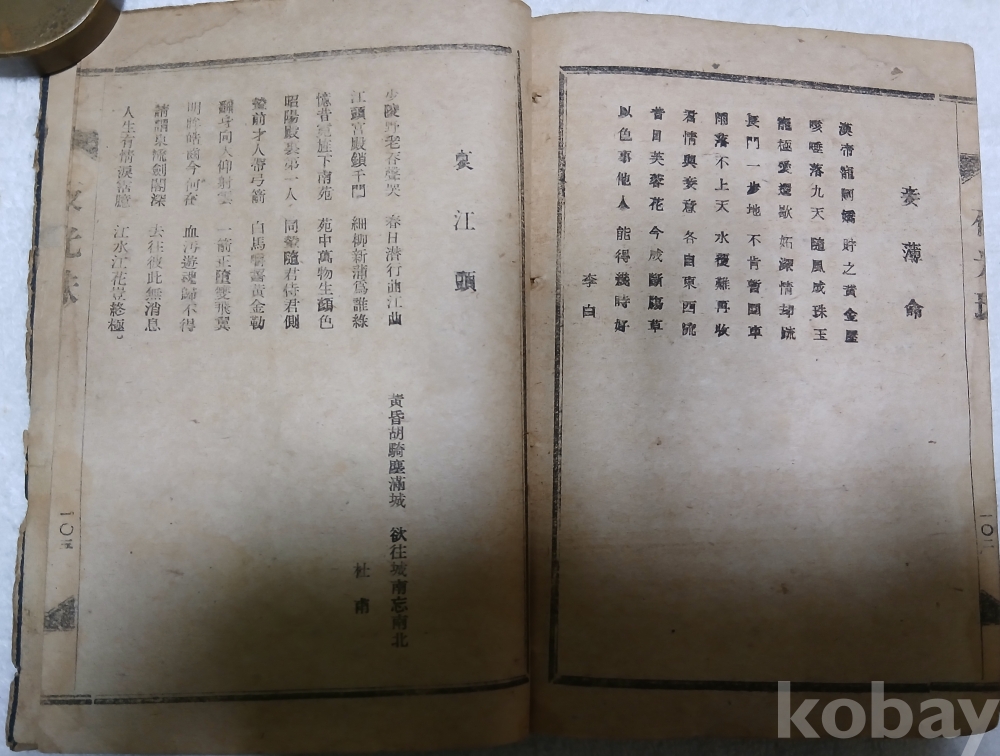 妾薄命
漢帝寵阿嬌 貯之黃金屋
咳唾落九天 隨風成珠玉
寵極愛還歇 妬深情却疏
長門一步地 不肯暫回車
雨落不上天 水覆難再收
君情與妾意 各自東西流
昔日芙蓉花 今成斷腸草
以色事他人 能得幾時好
李白
一〇二
哀江頭
少陵野老吞聲哭 春日潛行曲江曲
江頭宮殿鎖千門 細柳新蒲爲誰綠
憶昔霓旌下南苑 苑中萬物生顏色
昭陽殿裏第一人 同輦隨君侍君側
輦前才人帶弓箭 白馬嚼齧黃金勒
翻身向天仰射雲 一箭正墮雙飛翼
明眸皓齒今何在 血汚遊魂歸不得
淸渭東流劍閣深 去住彼此無消息
人生有情淚沾臆 江水江花豈終極。
黃昏胡騎塵滿城 欲往城南忘南北
杜甫
一〇三
kobay